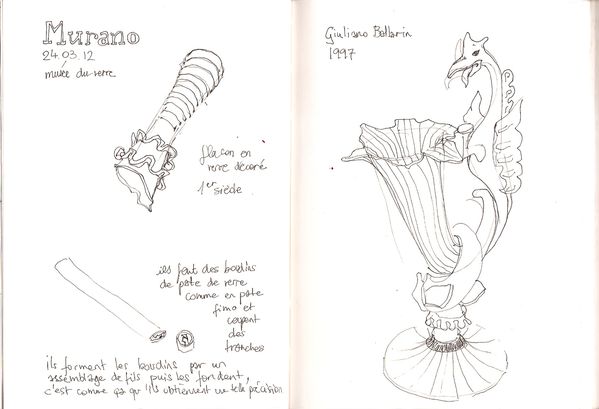 Murano
24.03.12
musée du verre
flacon en
verre décoré
1er siècle
ils font des boudins
de pâte de verre
comme en pâte
fimo et
coupent
des
tranches
ils forment les boudins par un
assemblage de fils puis les fondent,
c'est comme ça qu'ils obtiennent une telle précision
Giuliano Ballarin
1997